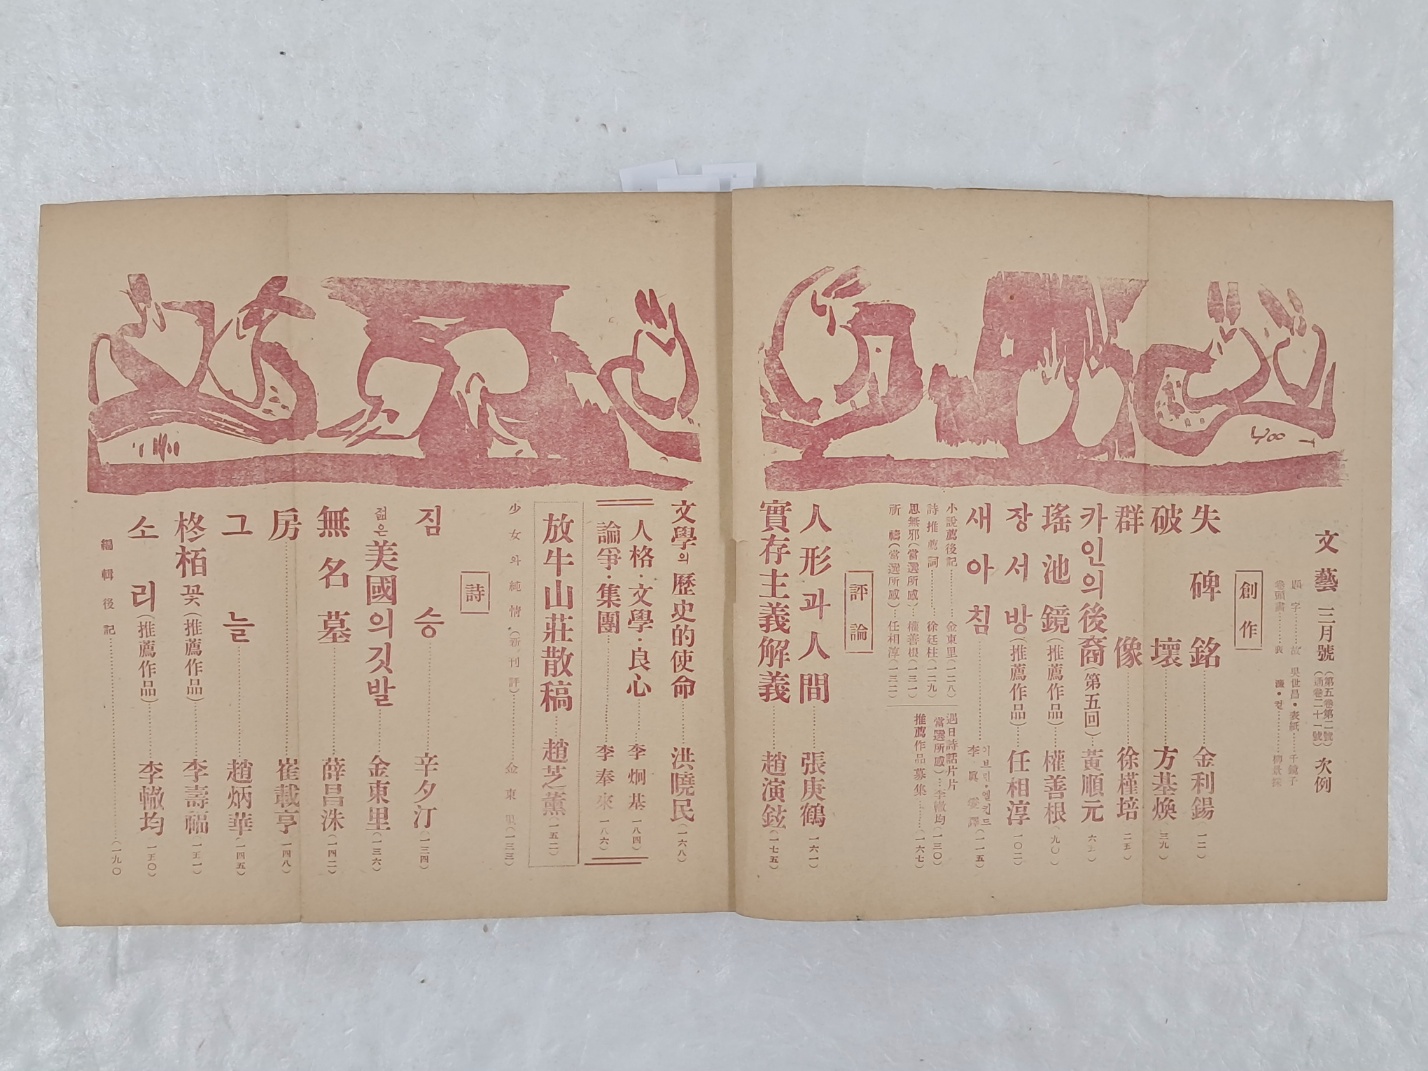 文藝 三月號 (第五卷第二號 通卷二十一號) 次例
題字……故 吳世昌・表紙……千鏡子
卷頭畵……表
創作
失碑銘……金利錫 (一二)
破壞……方基煥 (三九)
群像……徐槿培 (二五)
카인의 後裔 第五回……黃順元
瑤池鏡 (推薦作品)……權善根 (九〇)
장서방 (推薦作品)……任相淳 (一〇二)
새아침……李 (一一五)
小說薦後記……金東里 (一二八)
詩推薦詞……徐廷柱 (一二九)
思無邪 (當選所感)……權善根 (一三一)
所禱 (當選所感)……任相淳 (一三二)
遇日詩話片片
當選所感……李轍均 (一三〇)
推薦作品募集……(一六七)
評論
人形과 人間……張庚鶴 (一六一)
實存主義解義……趙演鉉 (一七五)
文學의 歷史的使命……洪曉民 (一六八)
人格・文學・良心……李烱基 (一八四)
論爭・集團……李奉來 (一八六)
放牛山莊散稿……趙芝薰 (一五二)
少女와 純情・(新刊評)……金東里 (一三三)
詩
짐승……辛夕汀 (一三四)
젊은 美國의 깃발……金東里 (一三六)
無名墓……薛昌洙 (一四二)
房……崔載亨 (一四八)
그늘……趙炳華 (一四五)
柊栢꽃 (推薦作品)……李壽福 (一五一)
소리 (推薦作品)……李轍均 (一五〇)
編輯後記……(一九〇)